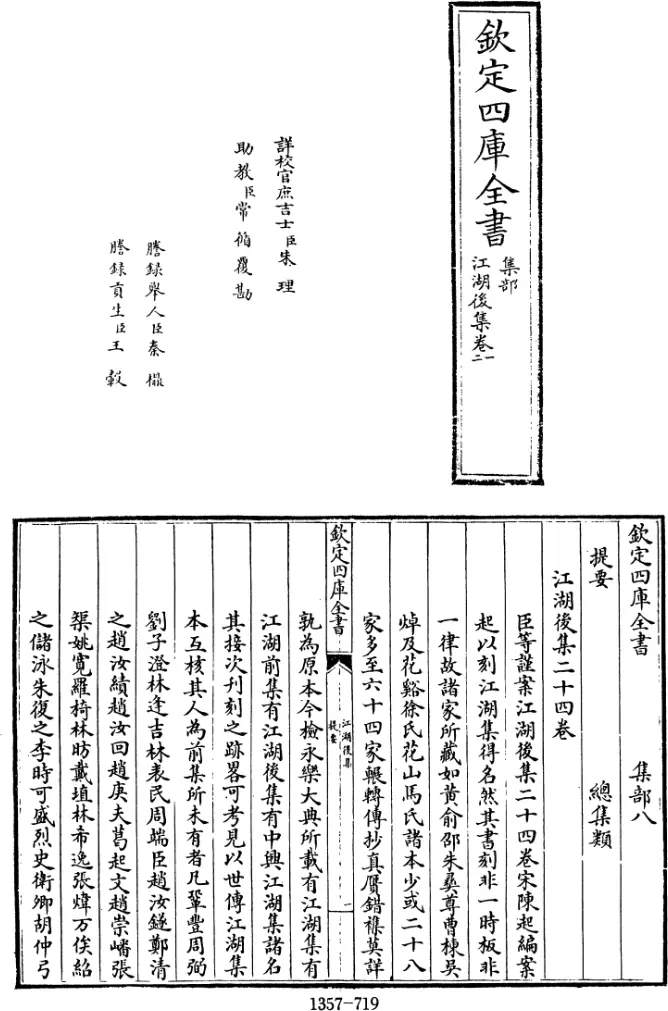 欽定四庫全書
集部
江湖後集卷一二
詳校官庶吉士臣朱理
助教臣常循覆勘
謄録舉人臣秦㩴
謄録貢生臣王轂
欽定四庫全書 集部八
提要 總集類
江湖後集二十四卷
臣等謹案江湖後集二十四卷宋陳起編案
起以刻江湖集得名然其書刻非一時板非
一律故諸家所藏如黄俞邵朱彝尊曹棟吳
焯及花谿徐氏花山馬氏諸本少或二十八
家多至六十四家輾轉傳抄真贗錯襍莫詳
欽定四庫全書
江湖後集
提要
一
孰為原本今檢永樂大典所載有江湖集有
江湖前集有江湖後集有中興江湖集諸名
其接次刋刻之跡畧可考見以世傳江湖集
本互核其人為前集所未有者凡鞏豐周弼
劉子澄林逢吉林表民周端臣趙汝鐩鄭清
之趙汝績趙汝回趙庚夫葛起文趙崇嶓張
榘姚寛羅椅林昉戴埴林希逸張煒万俟紹
之儲泳朱復之李時可盛烈史衛卿胡仲弓
1357-719